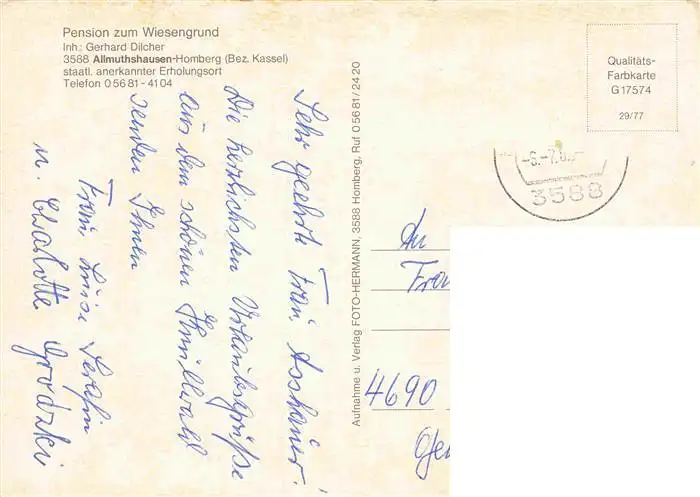 Pension zum Wiesengrund
Inh.: Gerhard Dilcher
3588 Allmuthshausen-Homberg (Bez. Kassel)
staatl. anerkannter Erholungsort
Telefon 0 56 81 - 41 04
Qualitäts-
Farbkarte
G 17574
29/77
3588
Aufnahme u. Verlag FOTO-HERMANN, 3588 Homberg, Ruf 0 56 81 / 24 20
Sehr geehrte Frau Asshauer!
Die herzlichsten Urlaubsgrüße
aus dem schönen Knüllwald
senden Ihnen
Frau Luise Serafin
u. Charlotte Grodzki
An
Frau
4690